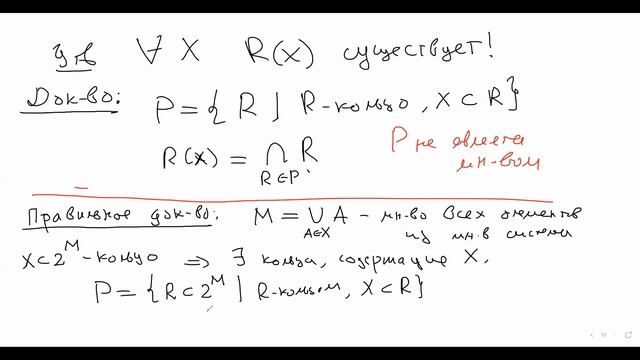 Утв ∀ X R(X) существует!
Док-во: P = { R | R-кольцо, X ⊂ R }
R(X) = ⋂ R
R∈P
P не является
мн-вом
Правильное док-во: M = ∪ A - мн-во всех элементов
A∈X из мн.в системы
X ⊂ 2^M - кольцо ⇒ ∃ кольца, содержащие X.
P = { R ⊂ 2^M | R-кольцом, X ⊂ R }